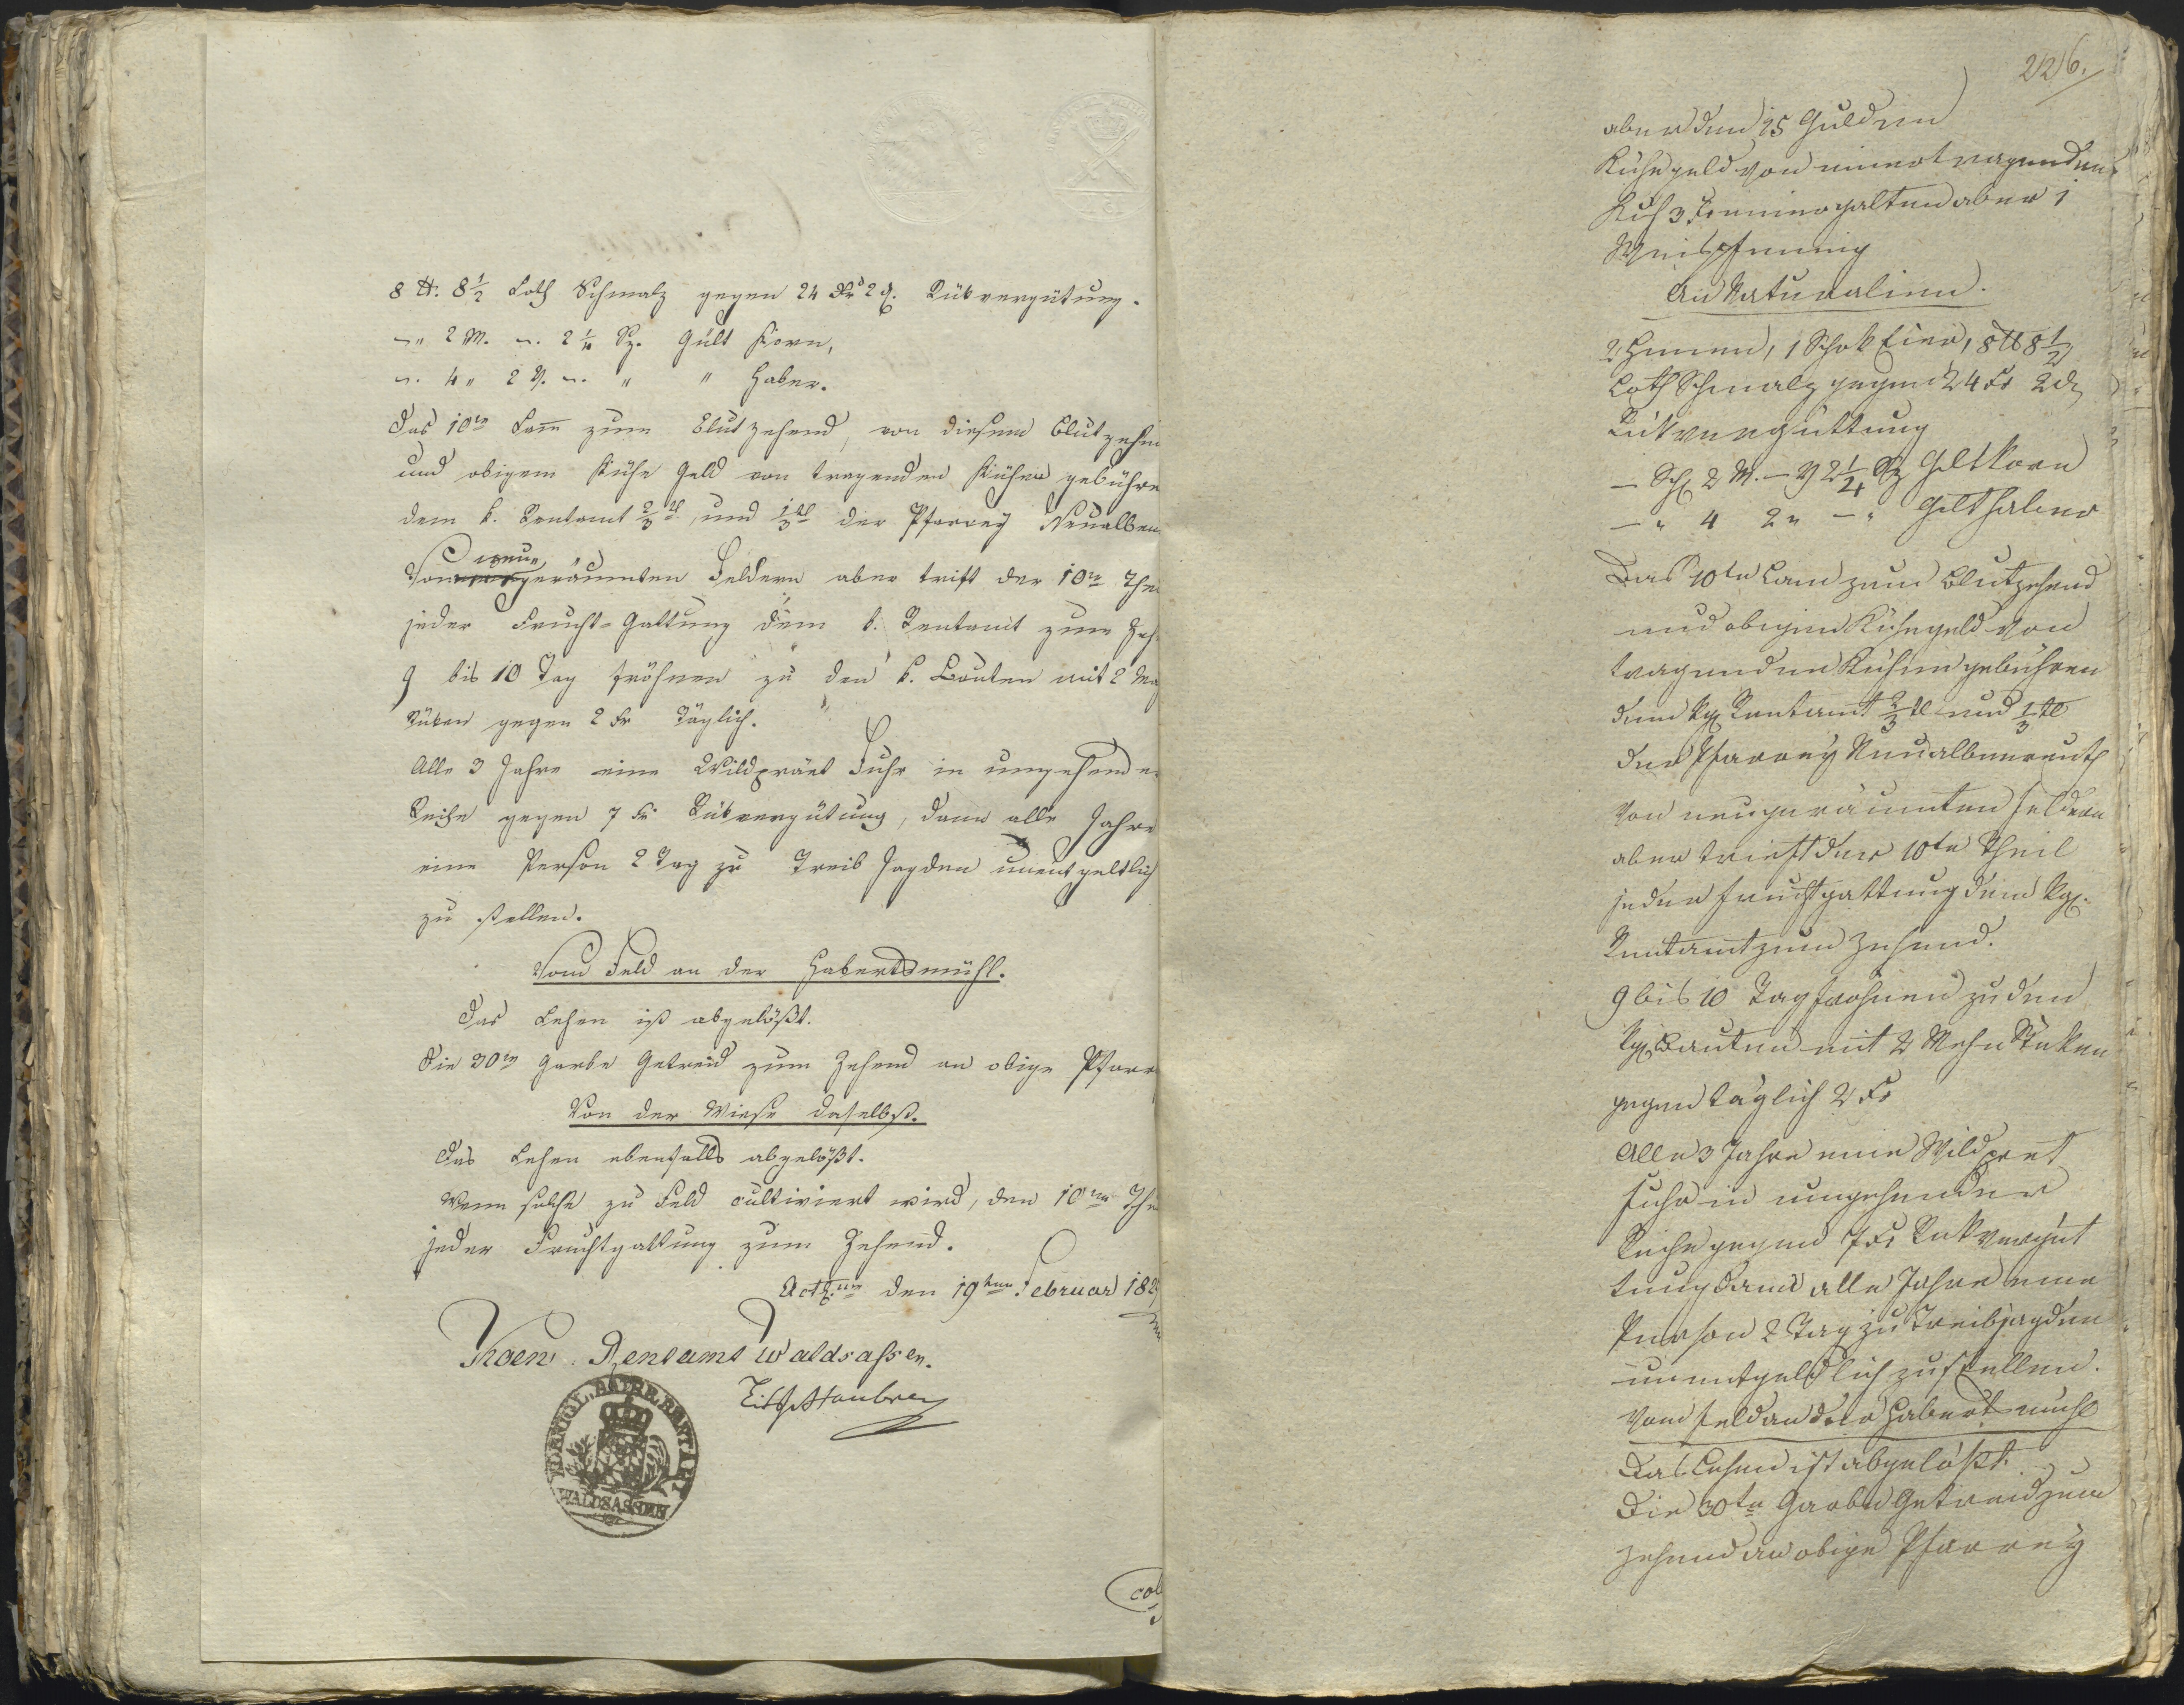 8 ℔. 8 1/2 Loth Schmalz gegen 24 Kr 2 d. Rükvergütung.
" 2 M. 2 1/4 Sz. Gült Korn,
4 " 2 V. " " Haber.
Das 10te Lam̅ zum Blutzehend, von diesem Blutzehen
und obigem Kühe Geld von tragenden Kühen gebühre
dem k. Rentamt 2/3 tl und 1/3 tl der Pfarrey Neualben
neu
Von geräumten Feldern aber trift der 10te Thei
jeder Frucht-Gattung dem k. Rentamt zum Zeh
9 bis 10 Tag fröhnen zu den k. Bauten mit 2
Stüken gegen 2 Kr täglich.
Alle 3 Jahre eine Wildpräet Fuhr in umgehender
Reihe gegen 7 Kr Rükvergütung, dann alle Jahre
eine Person 2 Tag zu Treib Jagden unentgeltlich
zu stellen.
Vom Feld an der Habertsmühl.
Das Lehen ist abgelößt.
Die 30te Garbe Getreid zum Zehend an obige Pfarr
Von der Wiese daselbst.
Das Lehen ebenfalls abgelößt.
Wenn solche zu Feld cultiviert wird, den 10ten Thei
jeder Fruchtgattung zum Zehend.
Actum den 19ten Februar 182
Koen. Rentamt Waldsassen.
KOENIGL. BAIER. RENTAMT
WALDSASSEN
col
226.
aber den 15 Gulden
Kühegeld von einer tragenden
Kuh 3 Kr einer galten aber 1
Weispfennig
An Naturalien.
2 Hennen, 1 Schok Eier, 8 ℔ 8 1/2
Loth Schmalz gegen 24 Kr 2 d
Rükvergüttung
— Sch 2 M. — V 2 1/4 Sz Giltkorn
— " 4 2 " — " Gilthaber
Das 10te Lam zum Blutzehend
und obigen Kühegeld von
tragenden Kühen gebühren
dem kgl Rentamt 2/3 tl und 1/3 tl
der Pfarrey Neualbenreuth
Von neugeräumten Feldern
aber trieft der 10te Theil
jeder Fruchtgattung dem kgl.
Rentamt zum Zehend.
9 bis 10 Tag frohnen zu den
kgl Bauten mit 2 Mehn Stüken
gegen täglich 2 Kr
Alle 3 Jahre eine Wildpret
fuhr in umgehender
Reihe gegen 7 Kr Rükvergüt
tung dann alle Jahre eine
Person 2 Tag zu Treibjagden
unentgeldlich zu stellen.
Vom Feld an der Habertsmühl
Das Lehen ist abgelößt.
Die 30te Garbe Getreid zum
Zehend an obige Pfarrey